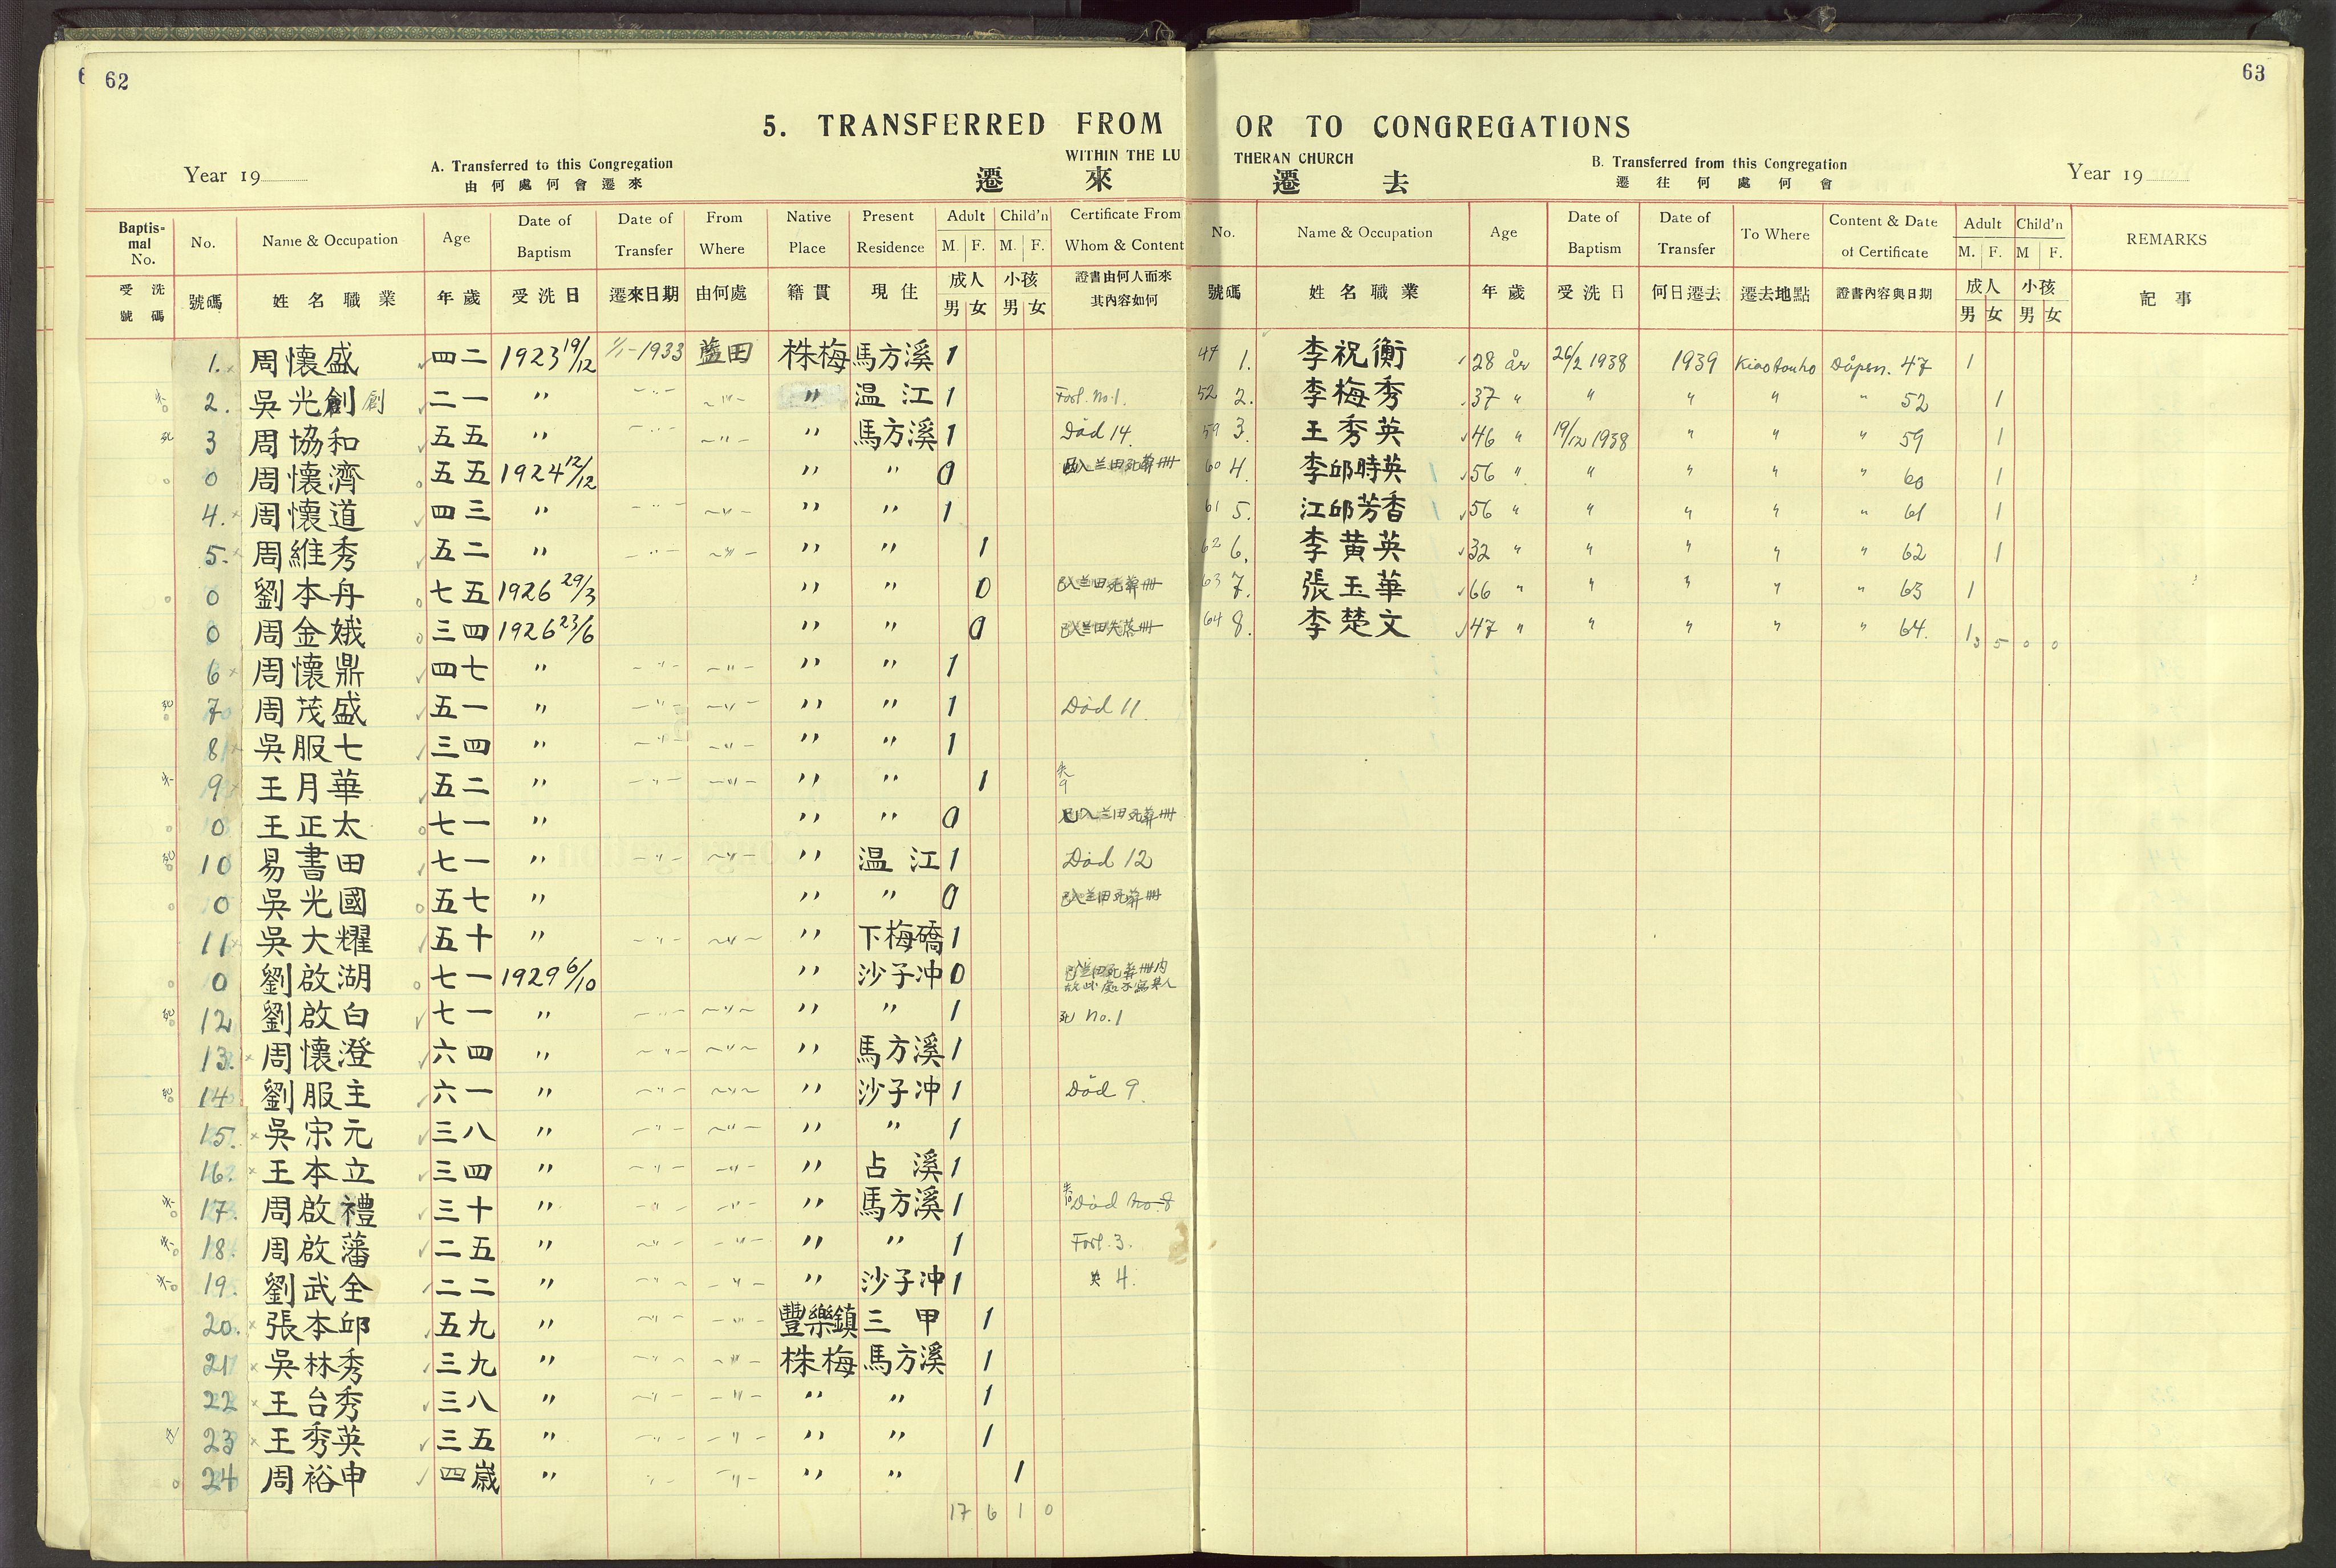 62
5. TRANSFERRED FROM
WITHIN THE LU
Year 19
A. Transferred to this Congregation
由何處何會遷來
遷來
Baptis-mal No. No. Name & Occupation Age Date of Baptism Date of Transfer From Where Native Place Present Residence Adult M. F. Child'n M. F. Certificate From Whom & Content
受洗號碼 號碼 姓名職業 年歲 受洗日 遷來日期 由何處 籍貫 現住 成人 男 女 小孩 男 女 證書由何人而來其內容如何
1. 周懷盛 四二 1923 19/12 1/1-1933 藍田 株梅 馬方溪 1
失 2. 吳光創 創 二一 〃 〃 〃 〃 温江 1 Forl. no 1.
死 3 周協和 五五 〃 〃 〃 〃 馬方溪 1 Död 14.
0 周懷濟 五五 1924 12/12 〃 〃 0 已入兰田死葬冊
4. 周懷道 四三 〃 〃 〃 〃 〃 1
5. 周維秀 五二 〃 〃 〃 〃 〃 1
0 劉本舟 七五 1926 29/3 〃 〃 0 已入兰田死葬冊
0 周金娥 三四 1926 23/6 〃 〃 0 已入兰田失落冊
6 周懷鼎 四七 〃 〃 〃 〃 〃 1
死 7 周茂盛 五一 〃 〃 〃 〃 〃 1 Död 11.
8 吳服七 三四 〃 〃 〃 〃 〃 1
失 9 王月華 五二 〃 〃 〃 〃 〃 1 失 9
0 王正太 七一 〃 〃 〃 0 已入兰田死葬冊
死 10 易書田 七一 〃 〃 〃 〃 温江 1 Död 12
0 吳光國 五七 〃 〃 〃 0 已入兰田死葬冊
11 吳大耀 五十 〃 〃 〃 〃 下梅礄 1
0 劉啟湖 七一 1929 6/10 〃 沙子冲 0 已入兰田死葬冊内
死 12 劉啟白 七一 〃 〃 〃 〃 〃 1 死 no. 1
13. 周懷澄 六四 〃 〃 〃 〃 馬方溪 1
死 14 劉服主 六一 〃 〃 〃 〃 沙子冲 1 Död 9.
15. 吳宗元 三八 〃 〃 〃 〃 〃 1
16. 王本立 三四 〃 〃 〃 〃 占溪 1
失 17. 周啟禮 三十 〃 〃 〃 〃 馬方溪 1 失 10 Död no. 8
失 18. 周啟藩 二五 〃 〃 〃 〃 〃 1 Forl. 3.
失 19. 劉武全 二二 〃 〃 〃 〃 沙子冲 1 失 4.
20. 張本邱 五九 〃 〃 〃 豐樂鎮 三甲 1
21 吳林秀 三九 〃 〃 〃 株梅 馬方溪 1
22 王台秀 三八 〃 〃 〃 〃 〃 1
23 王秀英 三五 〃 〃 〃 〃 〃 1
24 周裕申 四歲 〃 〃 〃 〃 〃 1
17 6 1 0
63
OR TO CONGREGATIONS
THERAN CHURCH
遷去
B. Transferred from this Congregation
遷往何處何會
Year 19
No. Name & Occupation Age Date of Baptism Date of Transfer To Where Content & Date of Certificate Adult M. F. Child'n M F. REMARKS
號碼 姓名職業 年歲 受洗日 何日遷去 遷去地點 證書內容與日期 成人 男 女 小孩 男 女 記事
47 1. 李祝衡 28 år 26/2 1938 1939 Kiaotouho Dåpsn. 47 1
52 2. 李梅秀 37 〃 〃 〃 〃 〃 52 1
59 3. 王秀英 46 〃 19/12 1938 〃 〃 〃 59 1
60 4. 李邱時英 56 〃 〃 〃 〃 〃 60 1
61 5. 江邱芳香 56 〃 〃 〃 〃 〃 61 1
62 6. 李黄英 32 〃 〃 〃 〃 〃 62 1
63 7. 張玉華 66 〃 〃 〃 〃 〃 63 1
64 8. 李楚文 47 〃 〃 〃 〃 〃 64. 1
3 5 0 0